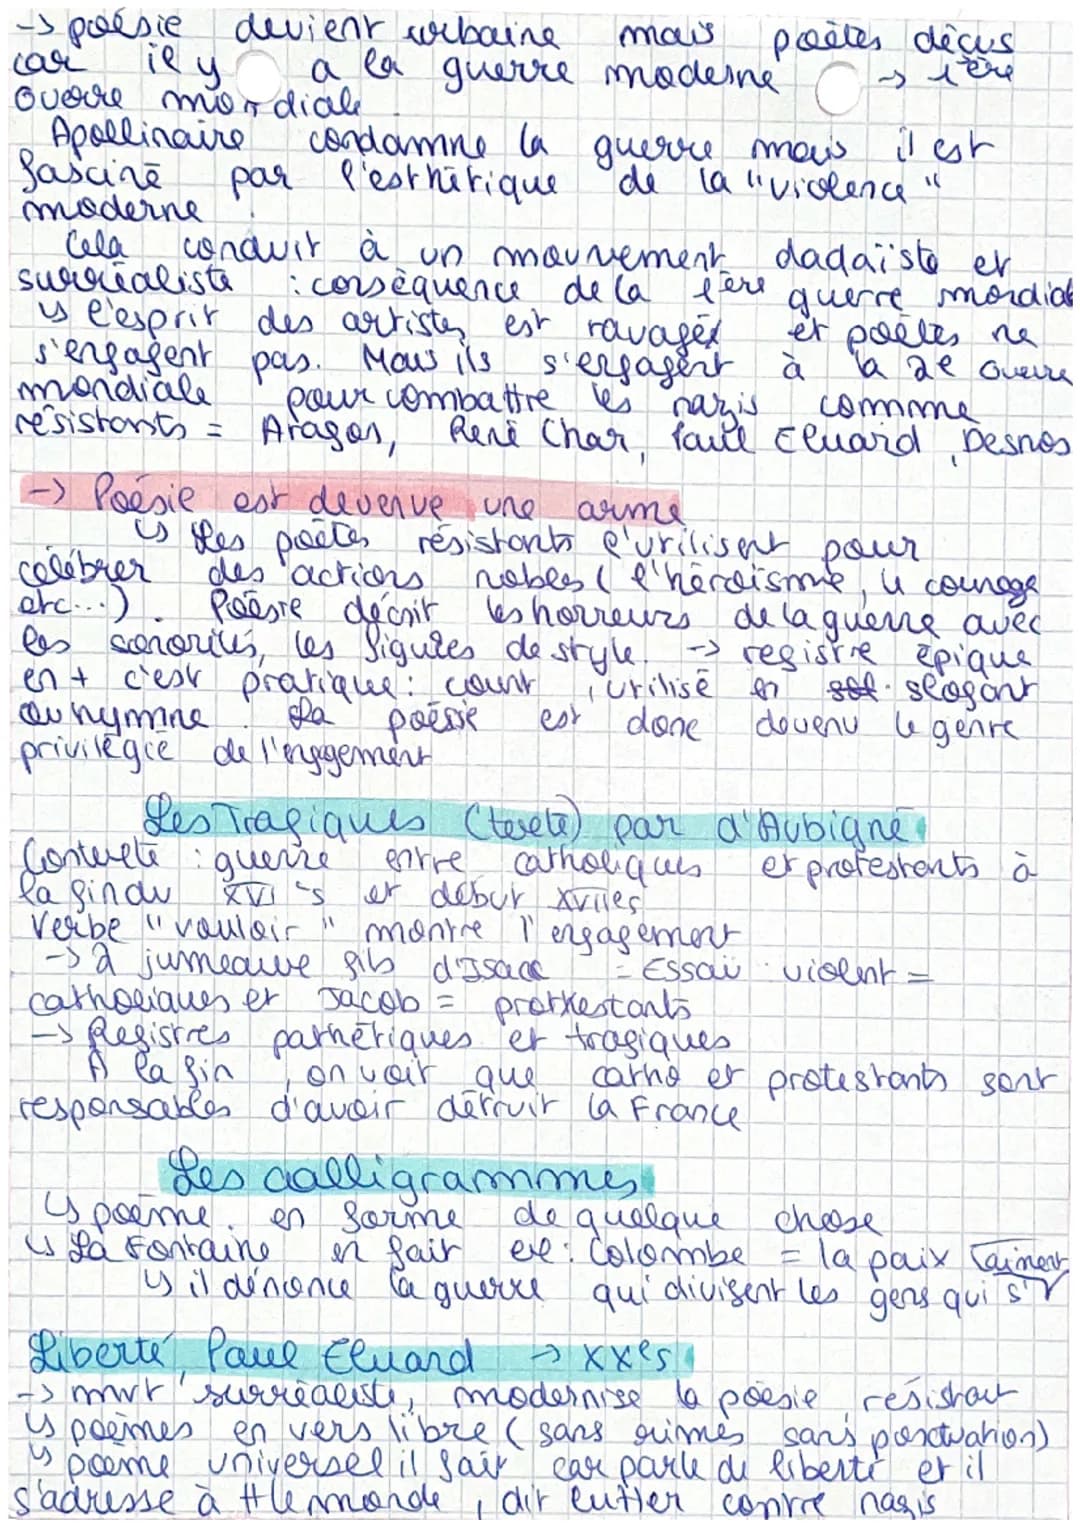 -> poésie devient urbaine mais poètes déçus
car il y a la guerre moderne -> 1ère
Guerre mondiale.
Apollinaire condamne la guerre mais il est
fasciné par l'esthétique de la "violence"
moderne.
Cela conduit à un mouvement dadaïste et
surréaliste : conséquence de la 1ère guerre mondiale
↳ l'esprit des artistes est ravagé et poètes ne
s'engagent pas. Mais ils s'engagent à la 2e Guerre
mondiale pour combattre les nazis comme
résistants = Aragon, René Char, Paul Eluard, Desnos
-> Poésie est devenue une arme
↳ Les poètes résistants l'utilisent pour
célébrer des actions nobles (l'héroïsme, le courage
etc...). Poésie décrit les horreurs de la guerre avec
les sonorités, les figures de style. -> registre épique
en + c'est pratique : court, utilisé en slogant
ou hymne. La poésie est donc devenu le genre
privilégié de l'engagement
Les Tragiques (texte) par d'Aubigné
Contexte : guerre entre catholiques et protestants à
la fin du XVI es et début XVIIes
Verbe "vouloir" montre l'engagement
-> 2 jumeaux fils d'Isaac = Esaü violent =
catholiques et Jacob = protestants
-> Registres pathétiques et tragiques
A la fin, on voit que catho et protestants sont
responsables d'avoir détruit la France
Les calligrammes
↳ poème en forme de quelque chose
↳ La Fontaine en fait ex : Colombe = la paix
↳ il dénonce la guerre qui divisent les gens qui s'aiment
Liberté, Paul Eluard -> XXes
-> mvt surréaliste, modernise la poésie, résistant
↳ poèmes en vers libre (sans rimes sans ponctuation)
↳ poème universel il fait car parle de liberté et il
s'adresse à tt le monde, dit lutter contre nazis